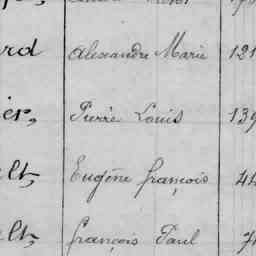 rd Alexandre Marie 121
ier, Pierre Louis 139
lt, Eugène françois 44
lt, françois Paul 7